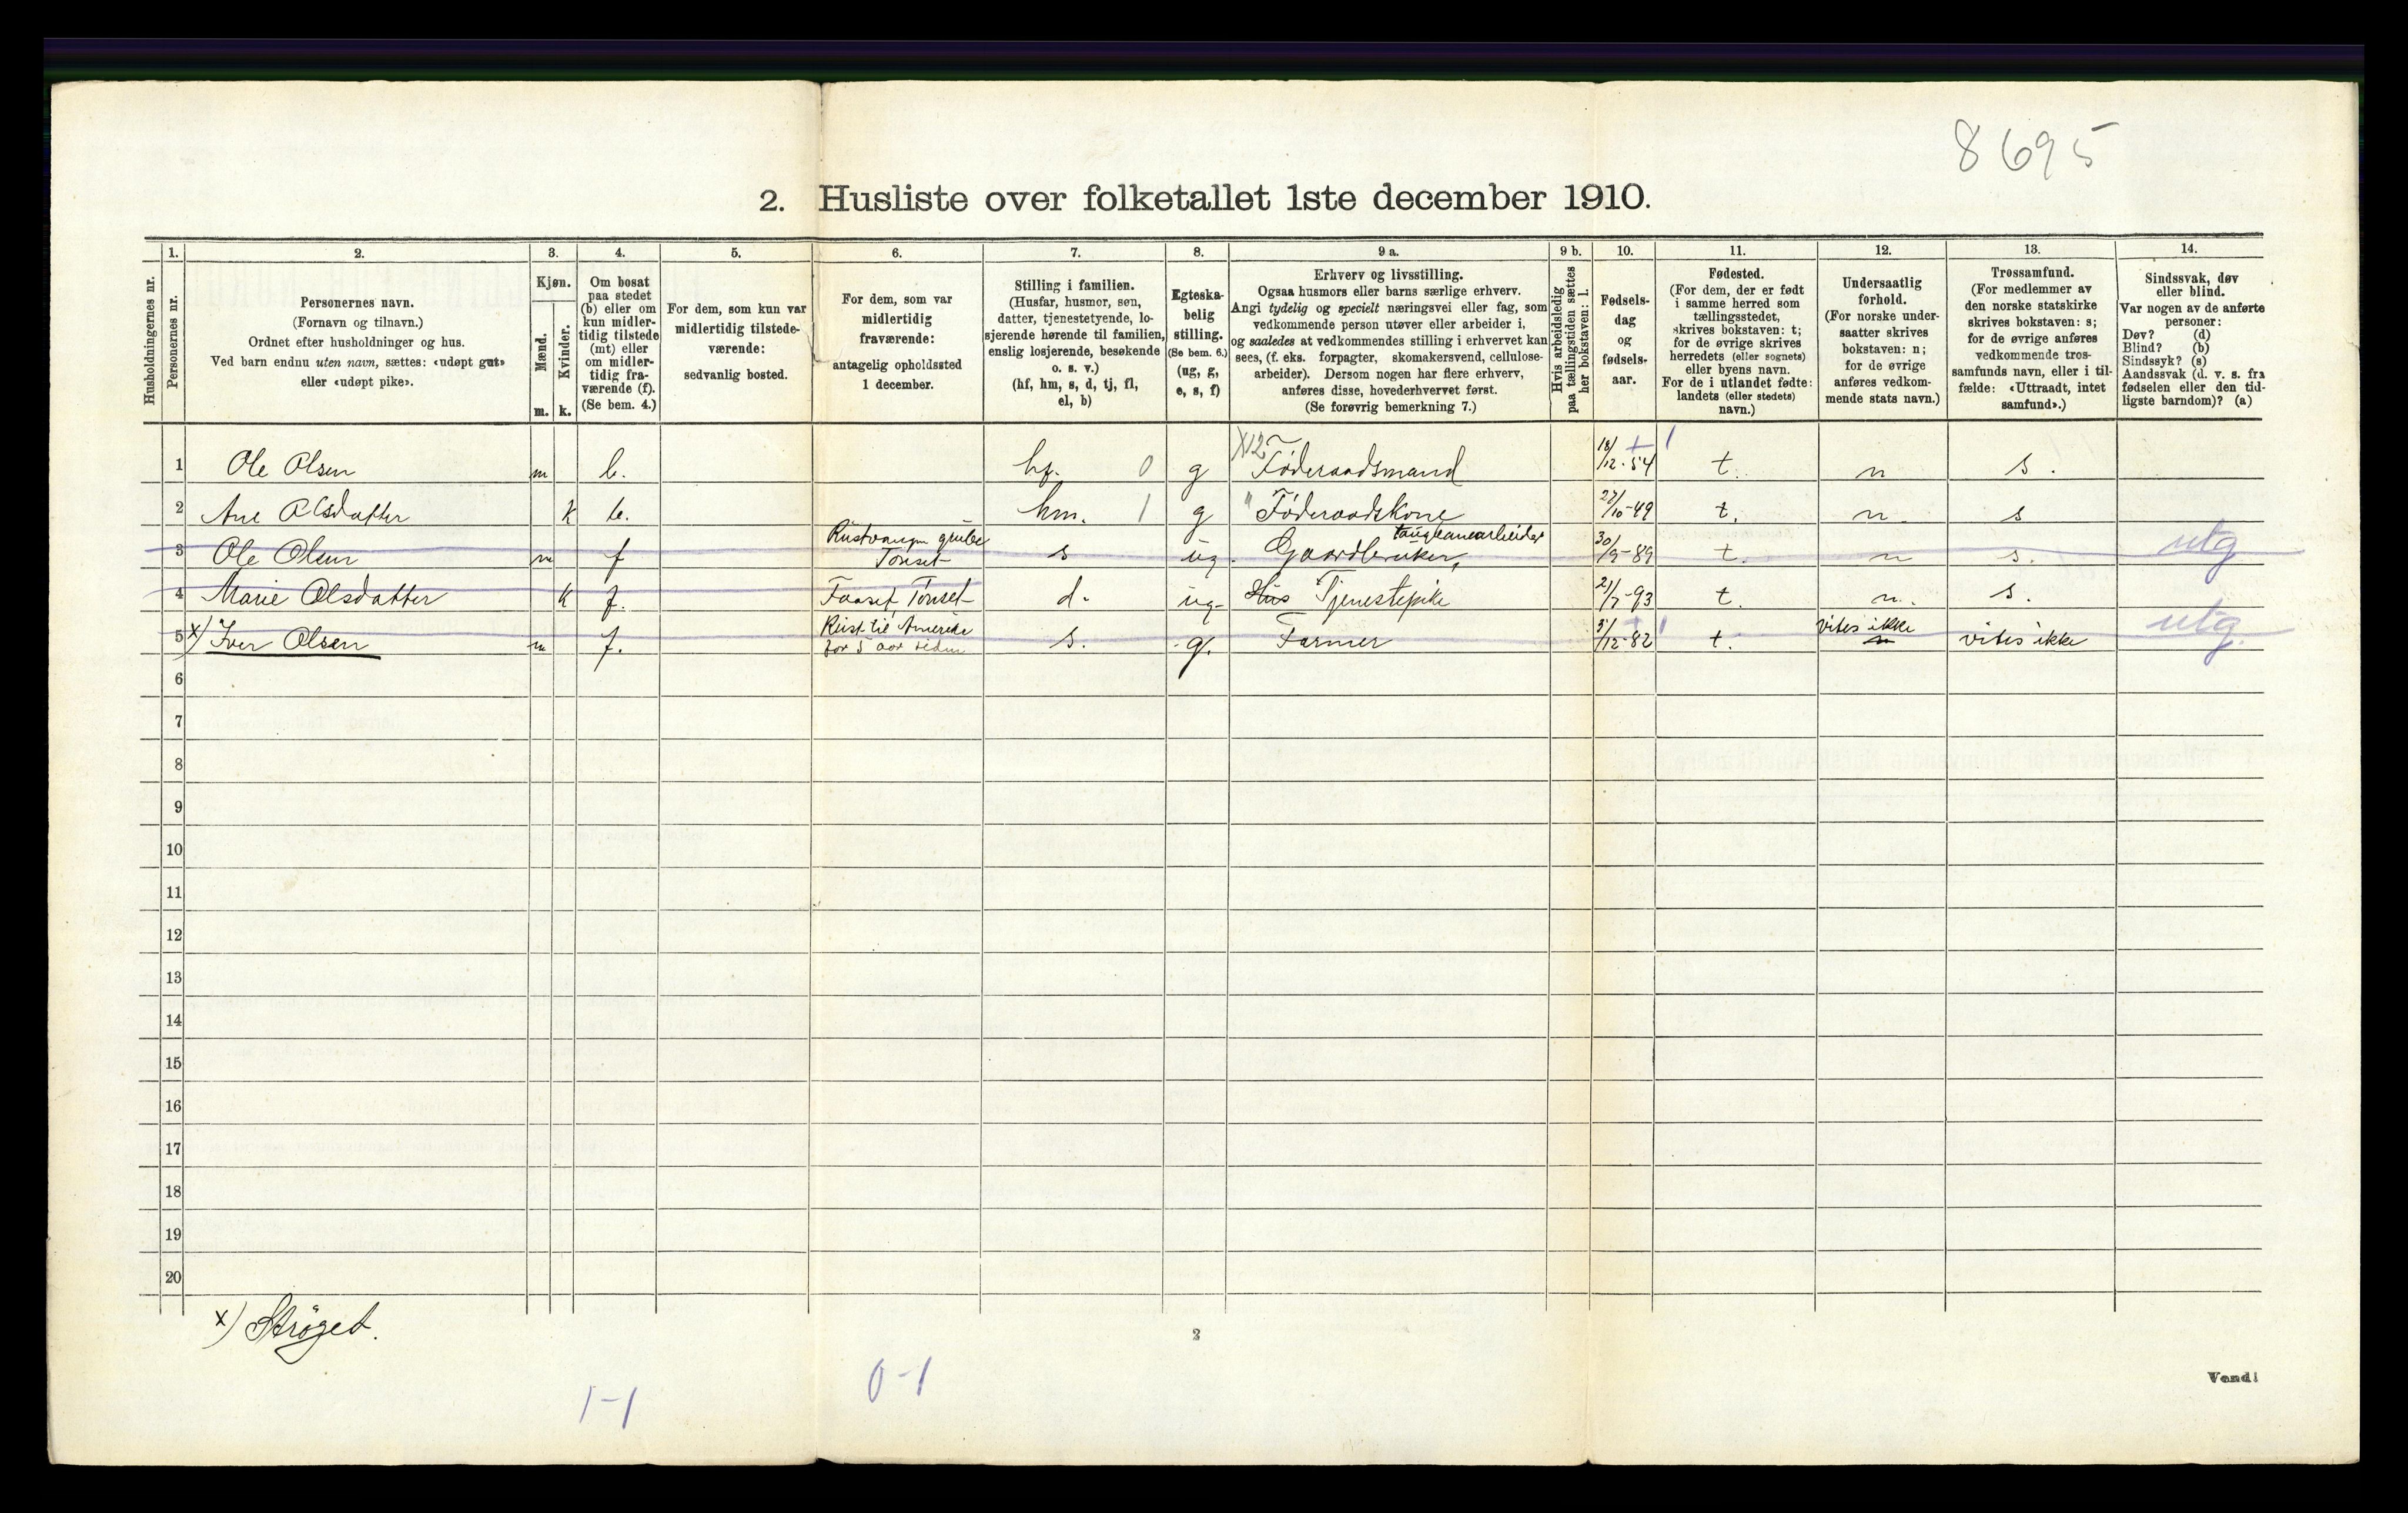 8695
2. Husliste over folketallet 1ste december 1910.
1. 2. 3. 4. 5. 6. 7. 8. 9 a. 9 b. 10. 11. 12. 13. 14.
Husholdningernes nr.
Personernes nr.
Personernes navn.
(Fornavn og tilnavn.)
Ordnet efter husholdninger og hus.
Ved barn endnu uten navn, sættes: «udøpt gut»
eller «udøpt pike».
Kjøn.
Mænd.
Kvinder.
m. k.
Om bosat
paa stedet
(b) eller om
kun midler-
tidig tilstede
(mt) eller
om midler-
tidig fra-
værende (f).
(Se bem. 4.)
For dem, som kun var
midlertidig tilstede-
værende:
sedvanlig bosted.
For dem, som var
midlertidig
fraværende:
antagelig opholdssted
1 december.
Stilling i familien.
(Husfar, husmor, søn,
datter, tjenestetyende, lo-
sjerende hørende til familien,
enslig losjerende, besøkende
o. s. v.)
(hf, hm, s, d, tj, fl,
el, b)
Egteska-
belig
stilling.
(Se bem. 6.)
(ug, g,
e, s, f)
Erhverv og livsstilling.
Ogsaa husmors eller barns særlige erhverv.
Angi tydelig og specielt næringsvei eller fag, som
vedkommende person utøver eller arbeider i,
og saaledes at vedkommendes stilling i erhvervet kan
sees, (f. eks. forpagter, skomakersvend, cellulose-
arbeider). Dersom nogen har flere erhverv,
anføres disse, hovederhvervet først.
(Se forøvrig bemerkning 7.)
Hvis arbeidsledig
paa tællingstiden sættes
her bokstaven: l.
Fødsels-
dag
og
fødsels-
aar.
Fødested.
(For dem, der er født
i samme herred som
tællingsstedet,
skrives bokstaven: t;
for de øvrige skrives
herredets (eller sognets)
eller byens navn.
For de i utlandet fødte:
landets (eller stedets)
navn.)
Undersaatlig
forhold.
(For norske under-
saatter skrives
bokstaven: n;
for de øvrige
anføres vedkom-
mende stats navn.)
Trossamfund.
(For medlemmer av
den norske statskirke
skrives bokstaven: s;
for de øvrige anføres
vedkommende tros-
samfunds navn, eller i til-
fælde: «Uttraadt, intet
samfund».)
Sindssvak, døv
eller blind.
Var nogen av de anførte
personer:
Døv? (d)
Blind? (b)
Sindssyk? (s)
Aandssvak (d. v. s. fra
fødselen eller den tid-
ligste barndom)? (a)
1 Ole Olsen m b. hf. 0 g X12 Føderaadsmand 18/12-54 t. n s.
2 Ane Olsdatter k b. hm. 1 g " Føderaadskone 27/10-49 t. n. s
3 Ole Olsen m f grube Tønset s ug. Gaardbruker, taugbanearbeider 30/9-89 t. n s. utg
4 Marie Olsdatter k f. Faaset, Tønset d. ug- Hus Tjenestepike 21/7-93 t. n. s.
5 x) Iver Olsen m f. Reist til Amerika for 5 aar siden s. g. Farmer 3/12-82 t. vites ikke n vites ikke utg.
6
7
8
9
10
11
12
13
14
15
16
17
18
19
20
x) Strøget.
2
0-1
1-1
Vend!